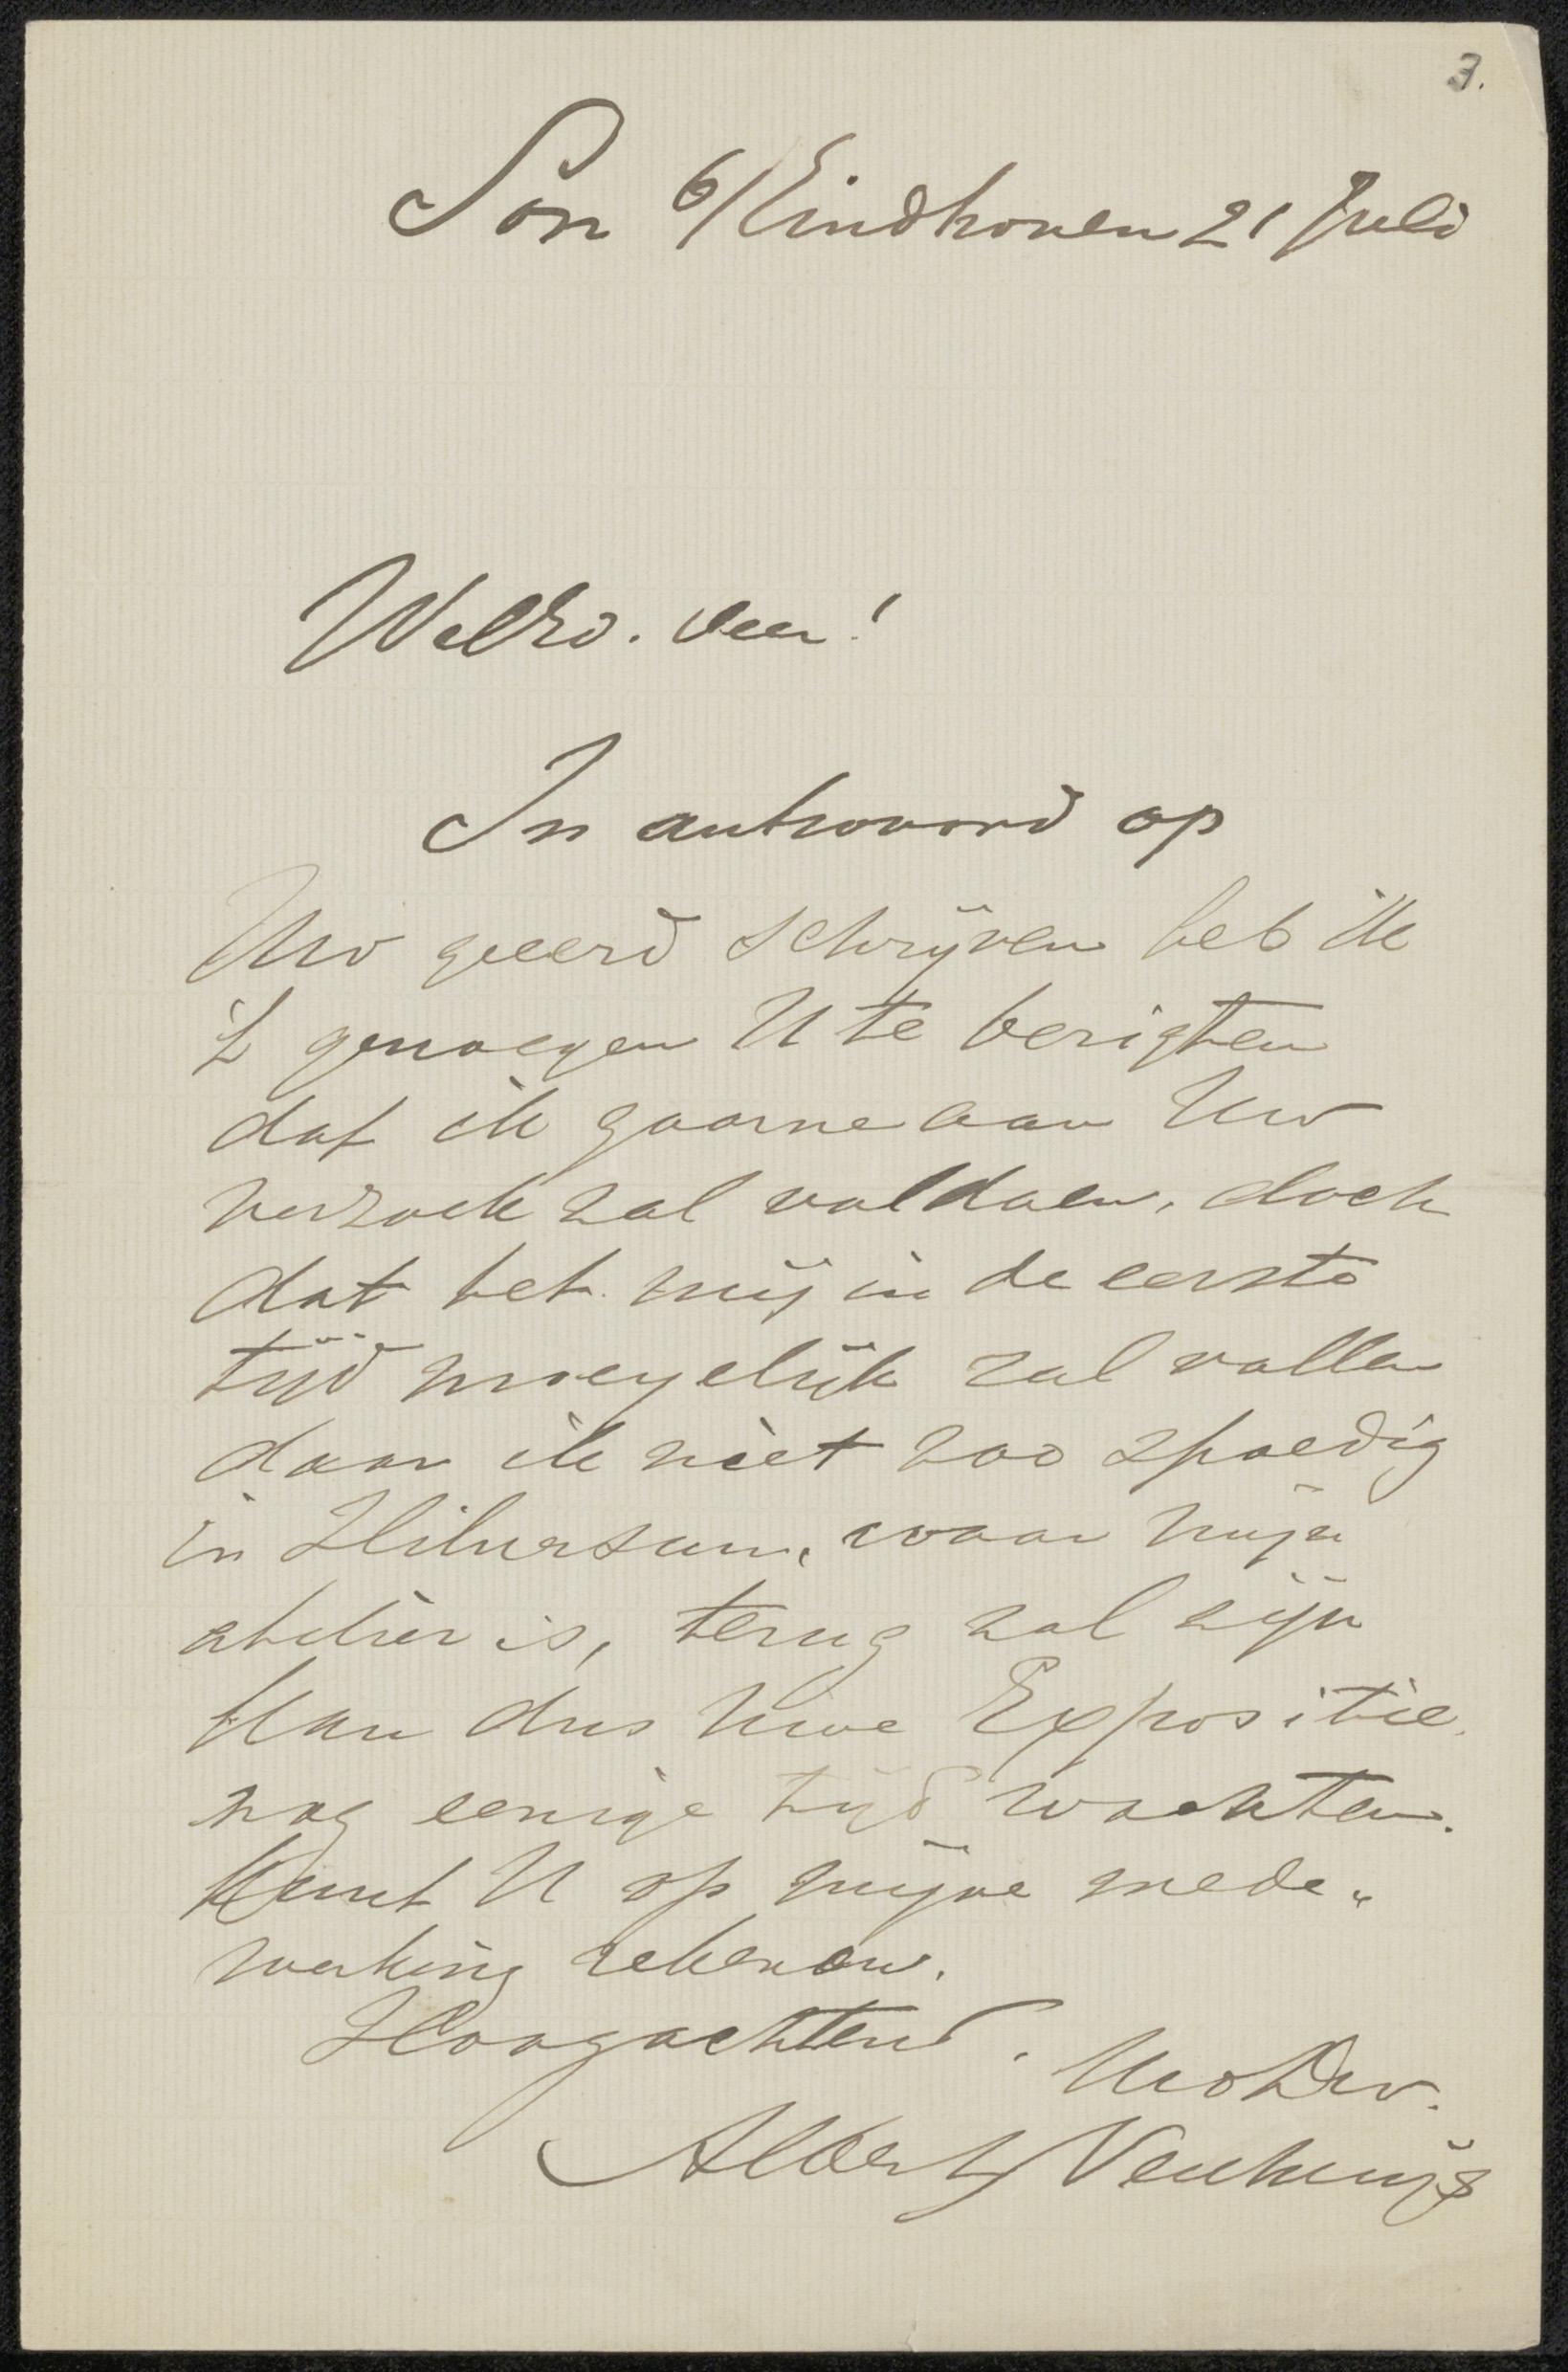 3.
Son b/Eindhoven 21 Juli
WelEd. Heer!
In antwoord op
Uw geeerd schrijven heb ik
't genoegen U te berigten
dat ik gaarne aan Uw
verzoek zal voldoen, doch
dat het mij in de eerste
tijd moeyelijk zal vallen
daar ik niet zoo spoedig
in Hilversum, waar mijn
atelier is, terug zal zijn
Kan dus Uwe Expositie
nog eenige tijd wachten.
Kunt U op mijne mede„
werking rekenen.
Hoogachtend.
Uw Dw.
Albert Neuhuijs